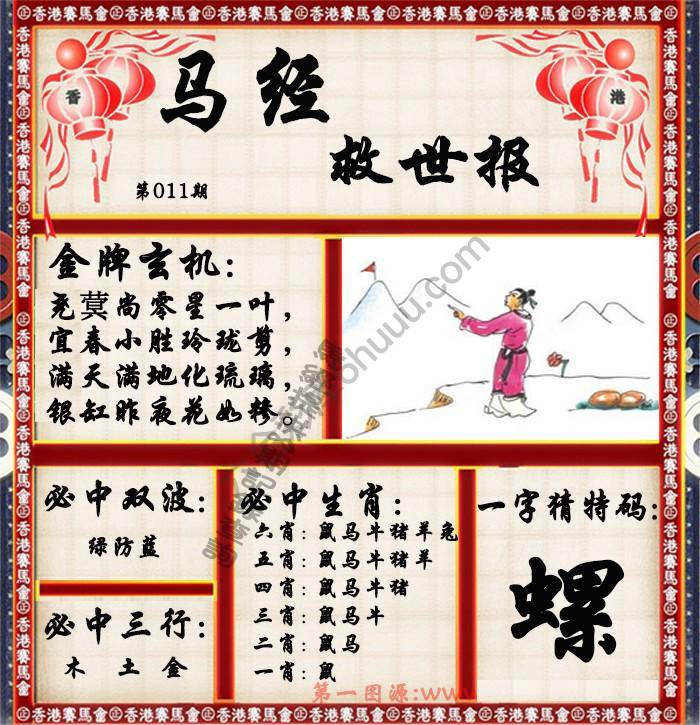 香港賽馬會㊣香港賽馬會㊣香港賽馬會㊣香港賽馬會
香
港
马经
救世报
第011期
金牌玄机：
尧蓂尚零星一叶，
宜春小胜玲珑剪，
满天满地化琉璃，
银缸昨夜花如糁。
必中双波：
绿防蓝
必中三行：
木 土 金
必中生肖：
六肖：鼠马牛猪羊兔
五肖：鼠马牛猪羊
四肖：鼠马牛猪
三肖：鼠马牛
二肖：鼠马
一肖：鼠
一字猜特码：
螺
第一图源:www